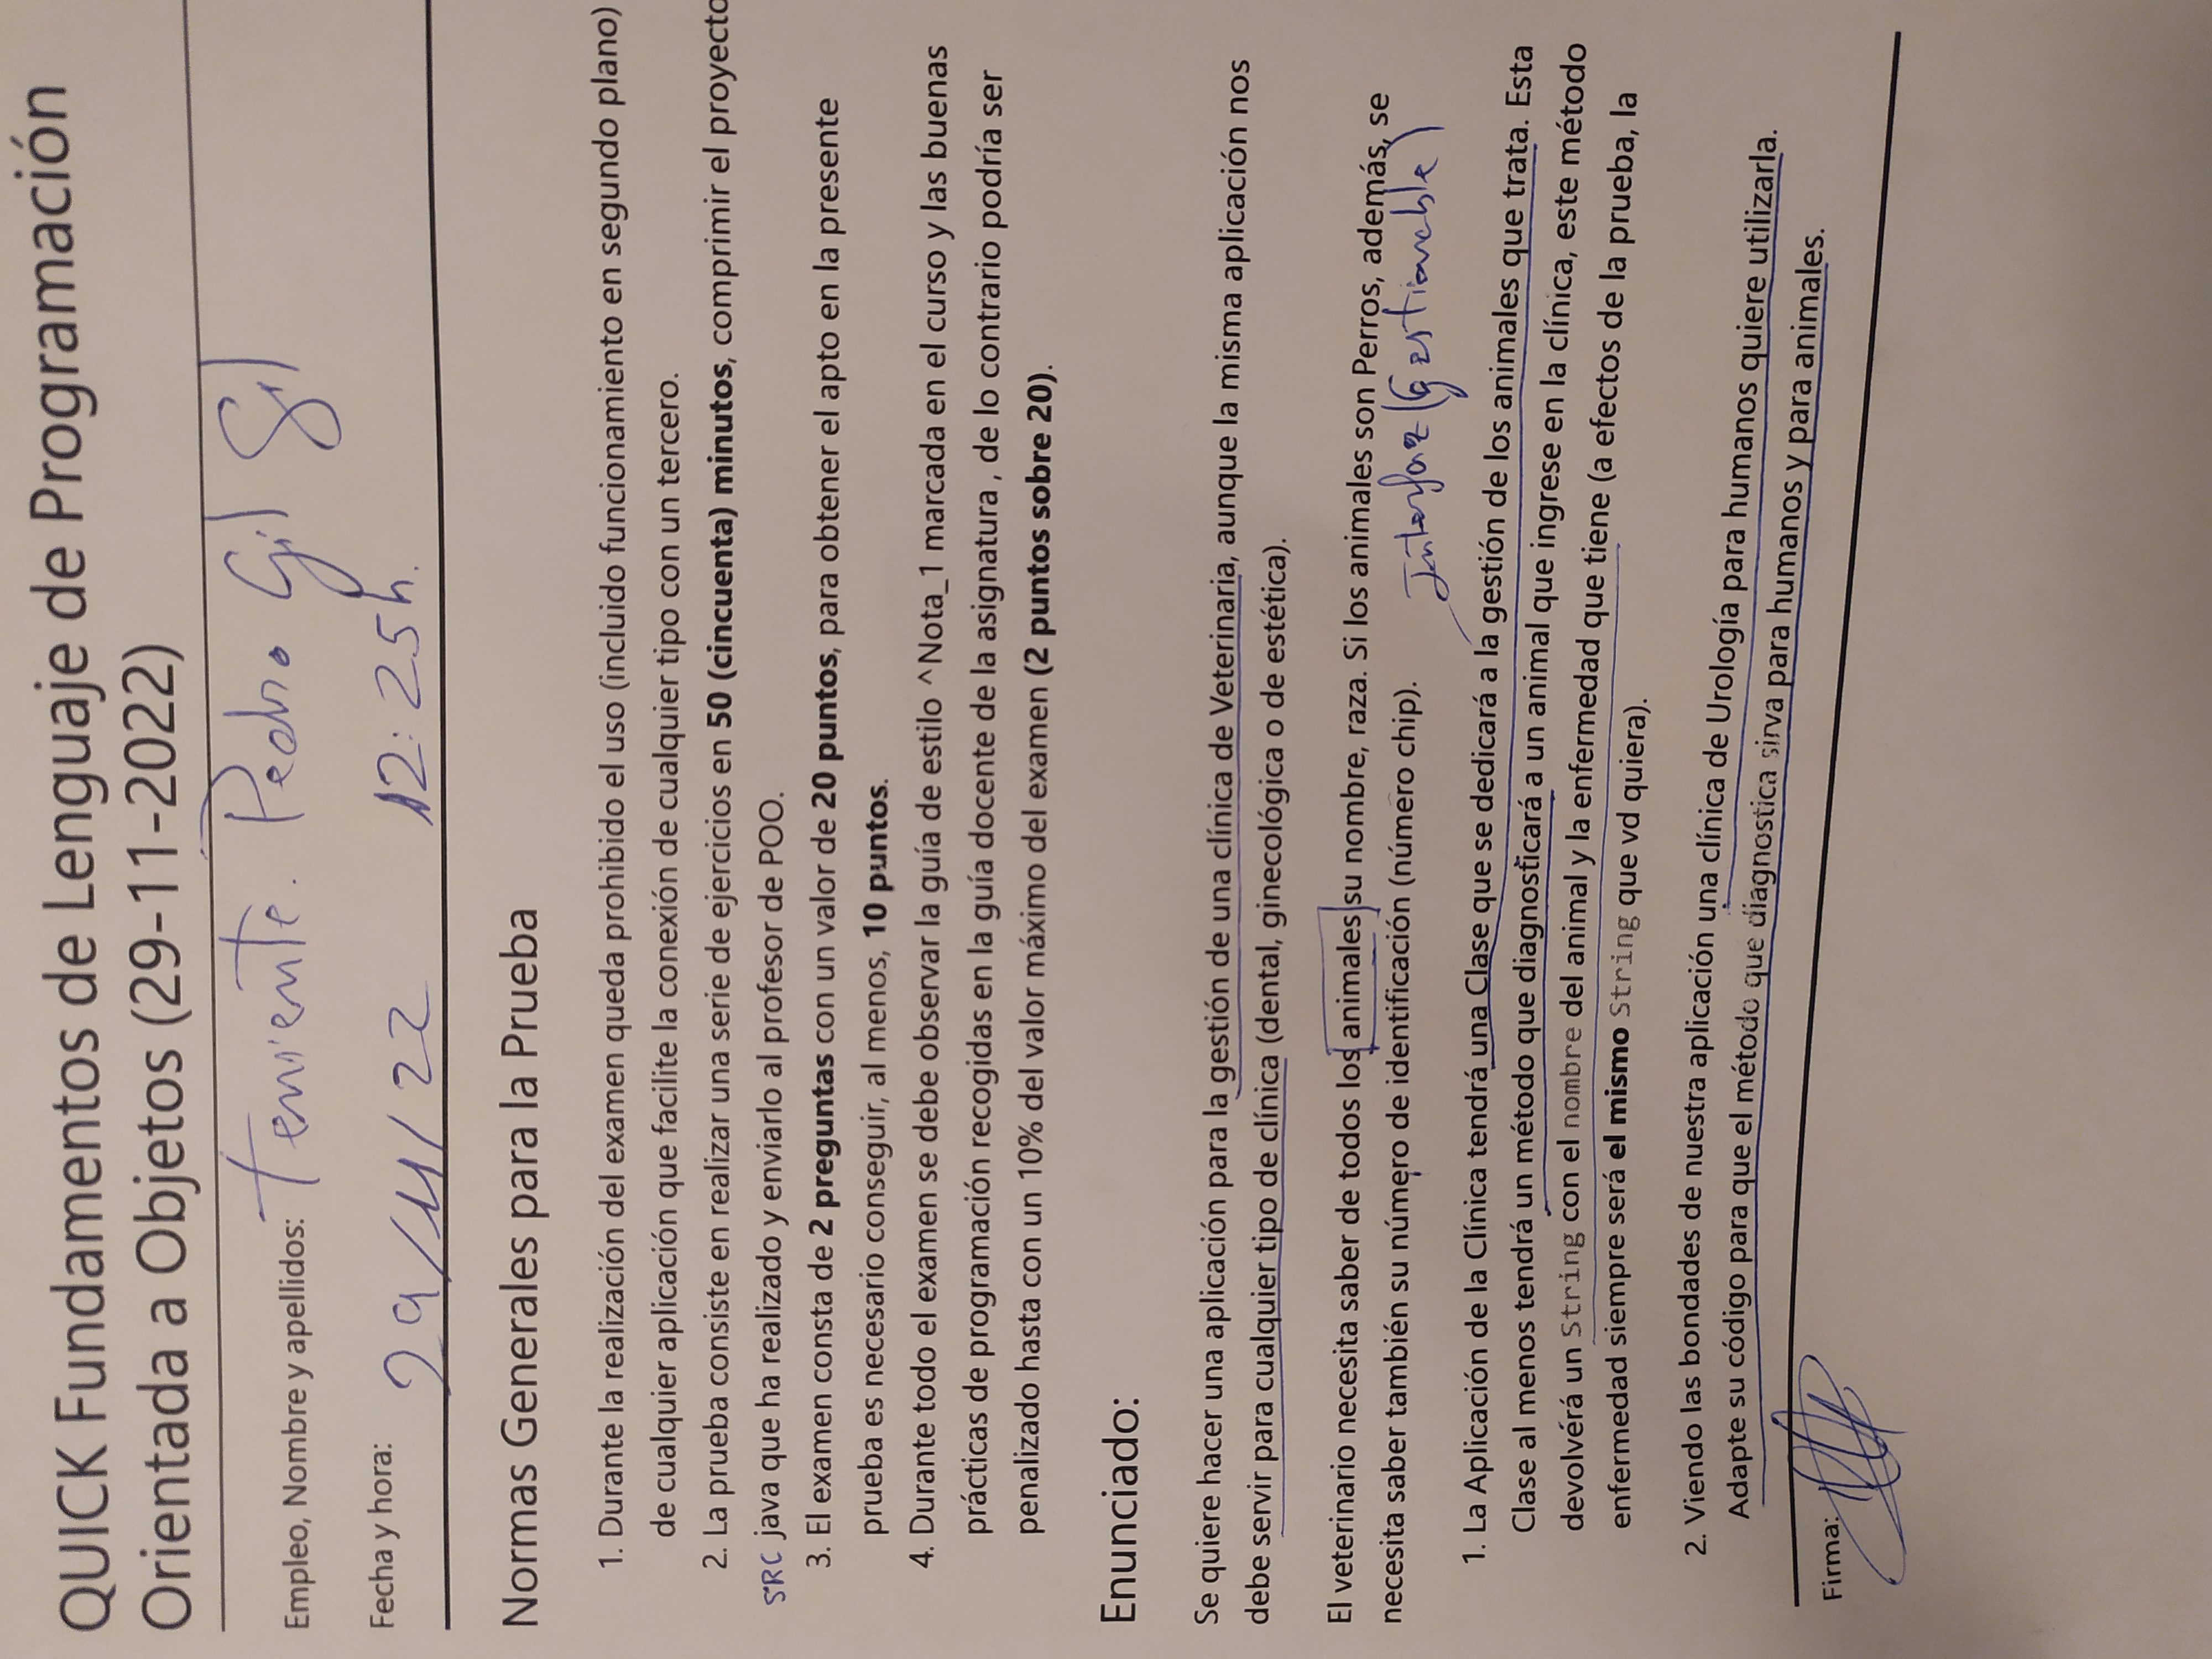 QUICK Fundamentos de Lenguaje de Programación
Orientada a Objetos (29-11-2022)
Empleo, Nombre y apellidos: Teniente. Pedro Gil Gil
Fecha y hora: 29/11/22 12:25h.
Normas Generales para la Prueba
1. Durante la realización del examen queda prohibido el uso (incluido funcionamiento en segundo plano)
de cualquier aplicación que facilite la conexión de cualquier tipo con un tercero.
2. La prueba consiste en realizar una serie de ejercicios en 50 (cincuenta) minutos, comprimir el proyecto
SRC java que ha realizado y enviarlo al profesor de POO.
3. El examen consta de 2 preguntas con un valor de 20 puntos, para obtener el apto en la presente
prueba es necesario conseguir, al menos, 10 puntos.
4. Durante todo el examen se debe observar la guía de estilo ^Nota_1 marcada en el curso y las buenas
prácticas de programación recogidas en la guía docente de la asignatura , de lo contrario podría ser
penalizado hasta con un 10% del valor máximo del examen (2 puntos sobre 20).
Enunciado:
Se quiere hacer una aplicación para la gestión de una clínica de Veterinaria, aunque la misma aplicación nos
debe servir para cualquier tipo de clínica (dental, ginecológica o de estética).
El veterinario necesita saber de todos los animales su nombre, raza. Si los animales son Perros, además, se
necesita saber también su número de identificación (número chip).
Interfaz (Gestionable)
1. La Aplicación de la Clínica tendrá una Clase que se dedicará a la gestión de los animales que trata. Esta
Clase al menos tendrá un método que diagnosticará a un animal que ingrese en la clínica, este método
devolvérá un String con el nombre del animal y la enfermedad que tiene (a efectos de la prueba, la
enfermedad siempre será el mismo String que vd quiera).
2. Viendo las bondades de nuestra aplicación una clínica de Urología para humanos quiere utilizarla.
Adapte su código para que el método que diagnostica sirva para humanos y para animales.
Firma: